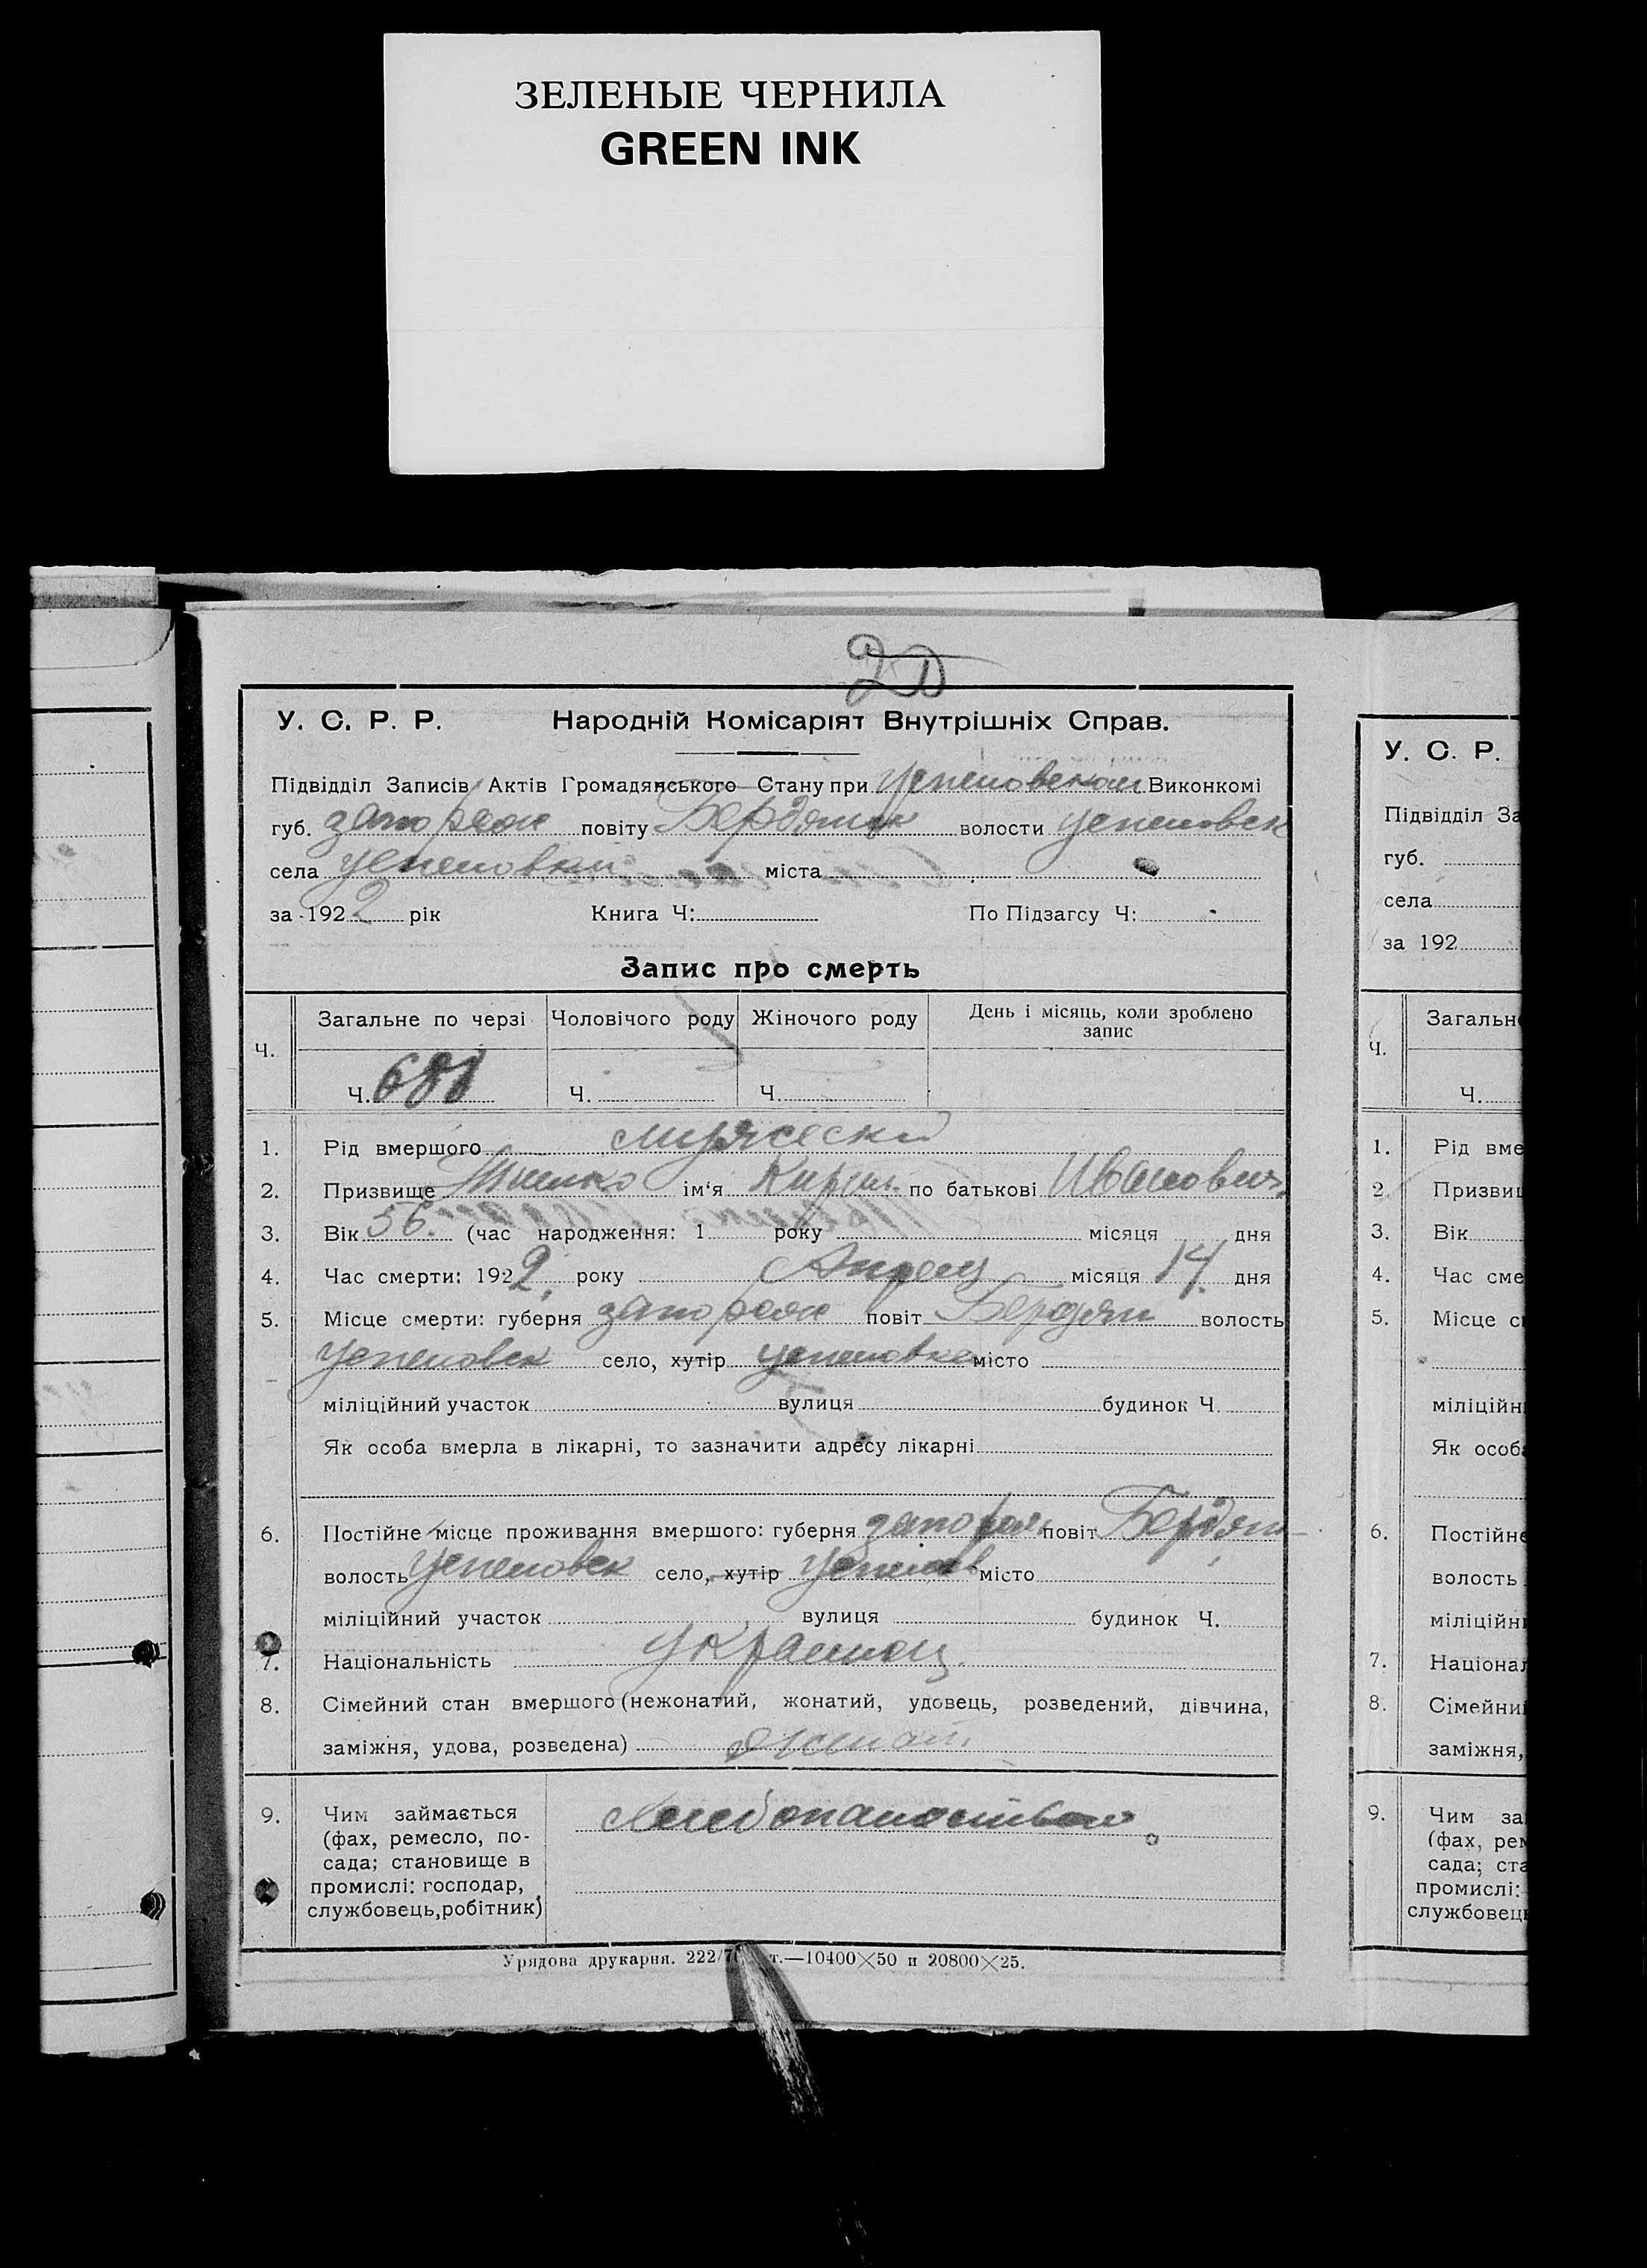 ЗЕЛЕНЫЕ ЧЕРНИЛА
GREEN INK
У. С. Р. Р. Народній Комісаріят Внутрішніх Справ.
Підвідділ Записів Актів Громадянського Стану при Успеновском Виконкомі
губ. запорож повіту Бердянск волости успеновск
села успеновки міста
за 1922 рік Книга Ч: По Підзагсу Ч:
Запис про смерть
Ч. Загальне по черзі Чоловічого роду Жіночого роду День і місяць, коли зроблено
запис
Ч. Ч. Ч.
1. Рід вмершого мужчески
2. Призвище імʼя Кирил по батькові Иванович
3. Вік 56. (час народження: 1 року місяця дня
4. Час смерти: 1922. року Апрель місяця 14. дня
5. Місце смерти: губерня запорож повіт Бердян волость
успеновск село, хутір успеновка місто
міліційний участок вулиця будинок Ч.
Як особа вмерла в лікарні, то зазначити адресу лікарні
6. Постійне місце проживання вмершого: губерня запорож повіт Бердян
волость успеновск село, хутір успенов місто
міліційний участок вулиця будинок Ч.
7. Національність украинец.
8. Сімейний стан вмершого (нежонатий, жонатий, удовець, розведений, дівчина,
заміжня, удова, розведена) женат
9. Чим займається
(фах, ремесло, по-
сада; становище в
промислі: господар,
службовець, робітник)
Урядова друкарня. т.—10400×50 и 20800×25.
У. С. Р.
Підвідділ За
губ.
села
за 192
Ч. Загальн
Ч.
1. Рід вме
2. Призвищ
3. Вік
4. Час сме
5. Місце с
міліційн
Як особ
6. Постійне
волость
міліційн
7. Націонал
8. Сімейний
заміжня,
9. Чим за
(фах, рем
сада; ста
промислі:
службовець